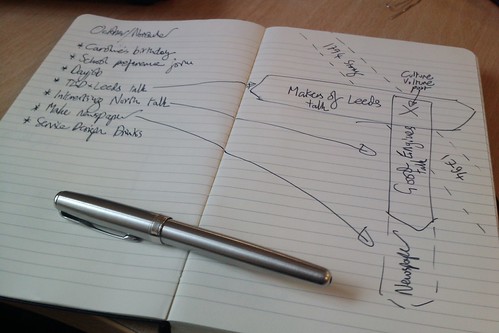 October November
* Caroline's birthday
* School preference form
* Day10
* TBD-Leeds talk
* Interesting North talk
* Make newspaper
* Service Design Drinks
Makers of Leeds
talk
Culture
Vulture
Good Engines
talk
Newspaper